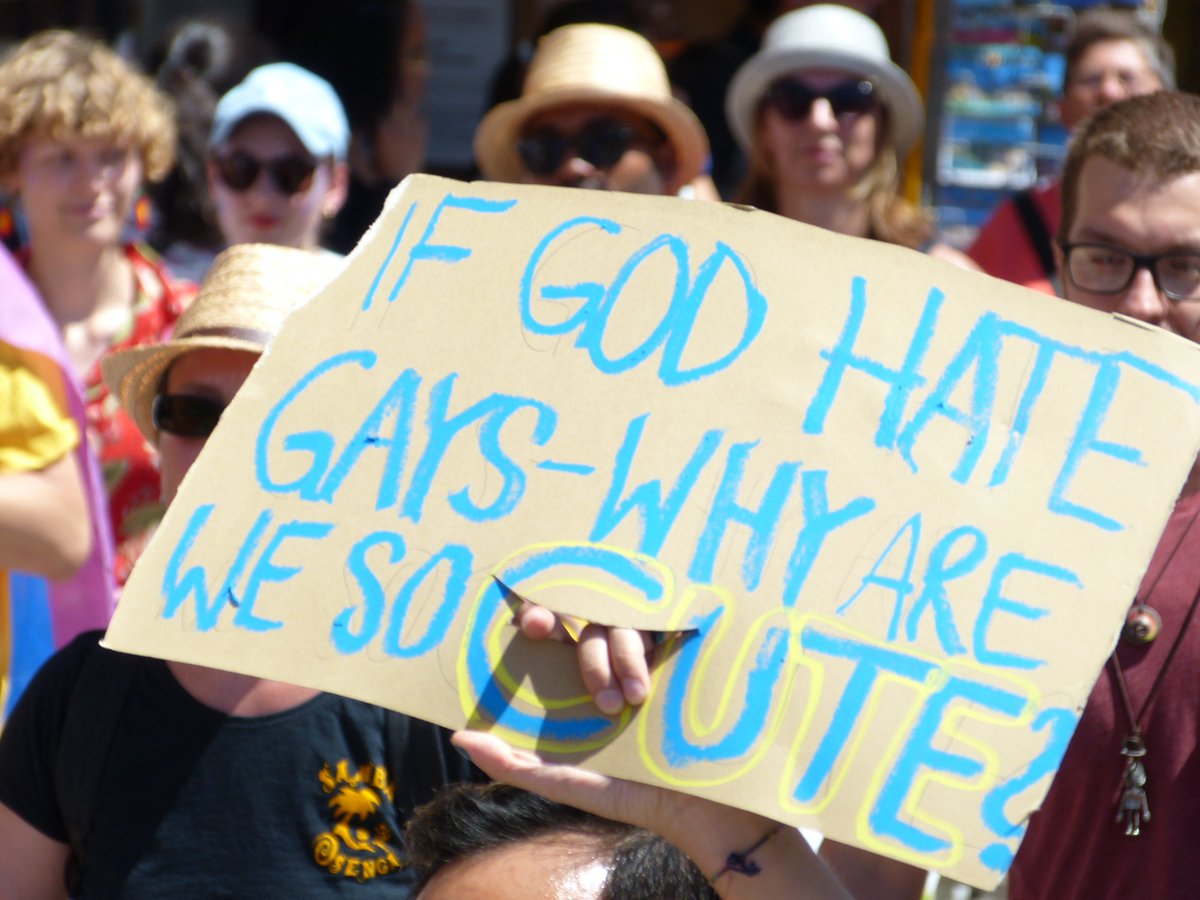 IF GOD HATE
GAYS-WHY ARE
WE SO CUTE?
SAMBA
OSENGA